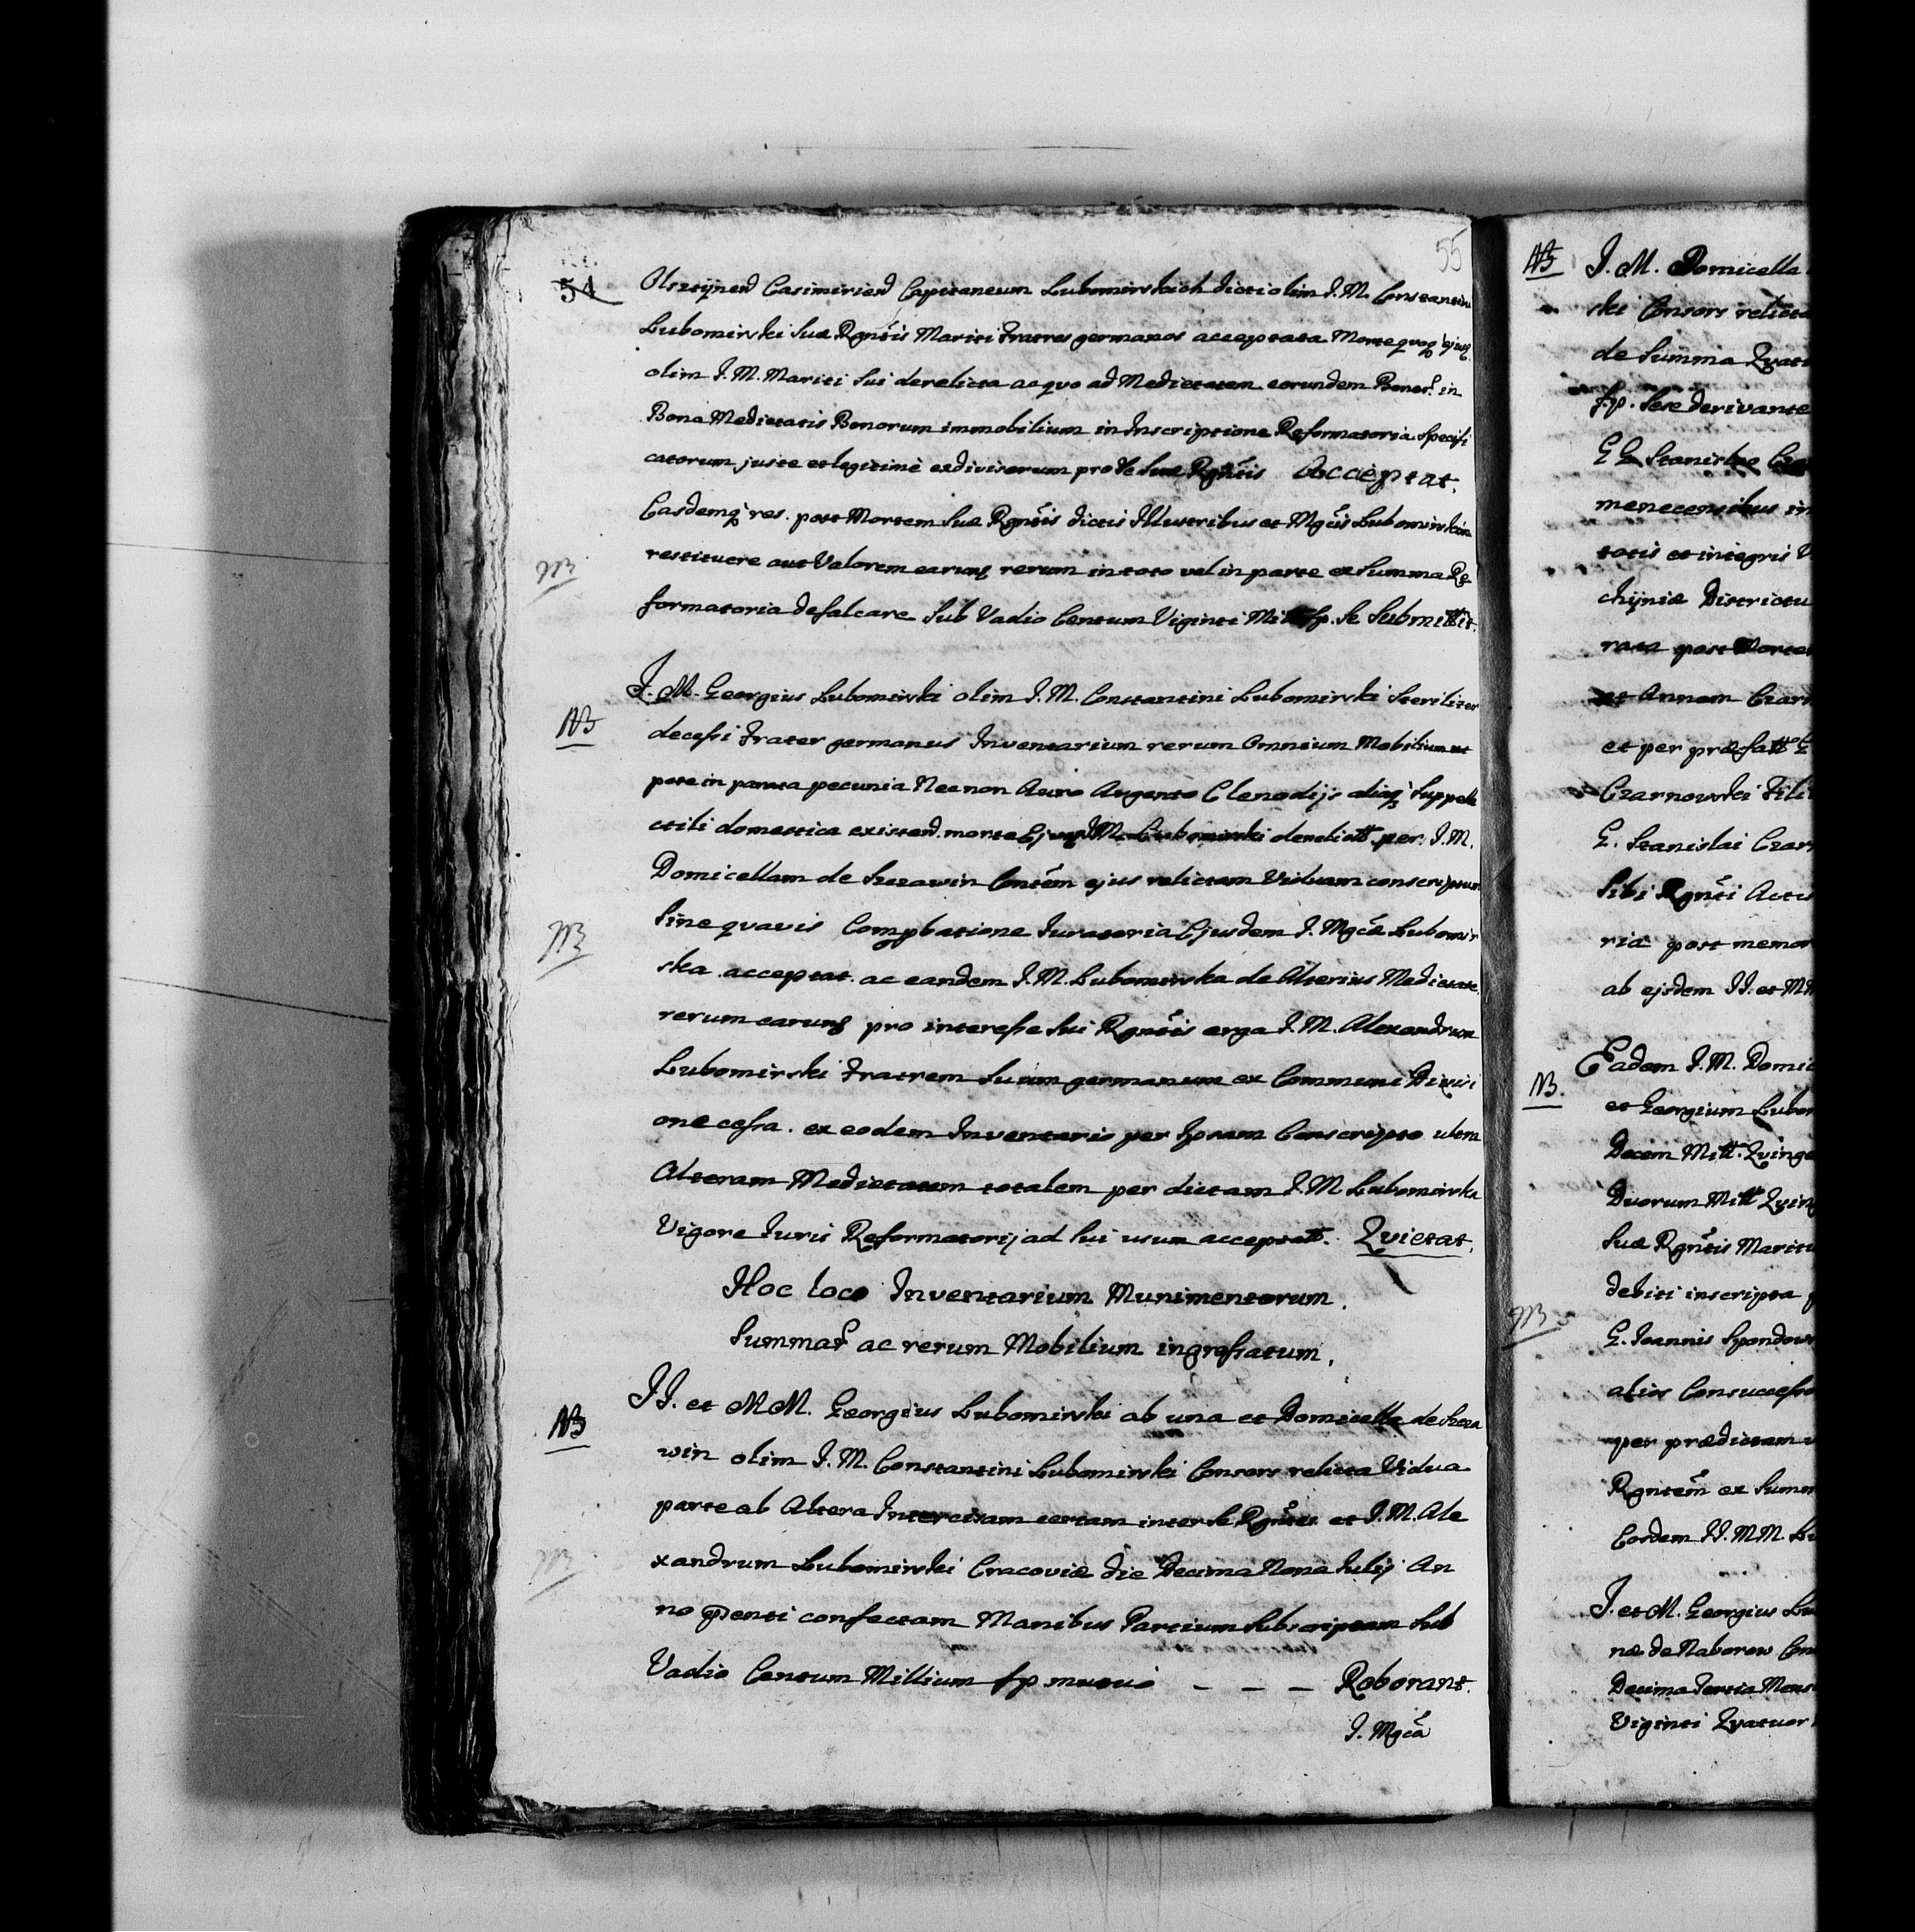 55
54
Olsztÿnen Casimirien Capitaneum Lubomirskich dicti olim J. M. Constantini
Lubomirski Suæ Rgñtis Mariti Fratres germanos acceptata Morteqvoq ejusq
olim J. M. Mariti sui derelicta ac qvo ad Medietatem eorundem Bonor. in
Bona Medietatis Bonorum immobilium in Inscriptione Reformatoria Specifi
catorum juste et legitimè exdivisorum pro se Suæ Rgñtis Acceptat.
Easdemq res. post Mortem Suæ Rgñtis dictis Illustribus et Mgcis Lubomirskim
NB
restituere aut Valorem earunq rerum in toto vel in parte ex Summa Re
formatoria defalcare Sub Vadio Centum Viginti Mill fp. Se Submittit.
J. M. Georgius Lubomirski olim J. M. Constantini Lubomirski Steriliter
NB
decessi Frater germanus Inventarium rerum Omnium Mobilium ut
pote in parata pecunia Necnon Auro Argento Clenodijs aliaq Suppelle
ctili domestica existend. morte Ejusq J M. Lubomirski derelictt per J. M.
Domicellam de Szczawin Contem ejus relictam Viduam conscriptum
NB
Sine qvavis Compbatione Juratoria Ejusdem J. Mgcæ Lubomir
ska acceptat. ac eandem J. M. Lubomirska de Alterius Medietate
rerum earunq pro interesse sui Rgñtis erga J. M. Alexandrum
Lubomirski Fratrem suum germanum ex Communi Divisi
one cessa. ex eodem Inventario per Ipsam Conscripto ultra
Alteram Medietatem totalem per dictam J. M Lubomirska
Vigore Juris Reformatorij ad sui usum acceptatt. Qvietat.
Hoc loco Inventarium Munimentorum.
Summar ac rerum Mobilium ingrossatum.
NB
JJ. et MM. Georgius Lubomirski ab una et Domicella de Szcza
win olim J. M. Constantini Lubomirski Consors relicta Vidua
parte ab Altera Intercisam certam inter se Rgñtes et J. M. Ale
NB
xandrum Lubomirski Cracoviæ die Decima Nona Julij An
no pænti confectam Manibus Partium Subscriptam Sub
Vadio Centum Millium fp mutuò _ _ _ Roborant.
J. Mgca
NB
J. M. Domicella
ski Consors relicta
de Summa Qvat
fp. Sese derivante
G G Stanislao
menecensibus in
totis et integris
chÿniæ Districtu
rata post Morte
et Annam Czarn
et per præfatt G
Czarnowski Fili
G. Stanislai Czar
Sibi Rgñti Actis
ria post memor
ab ejsdem JJ. et MM
Eadem J. M. Domic
NB.
et Georgium Lubor
Decem Mill. Qvinge
Duorum Mill Qving
Suæ Rgñtis Maritu
debiti inscripta
NB
G. Joannis Spondow
alios Consuccesso
per prædictam
Rgñtem ex Summ
Eosdem JJ. MM. Lu
J. et M. Georgius Lu
næ de Naborow Con
Decima Tertia Mens
Viginti Qvatuor